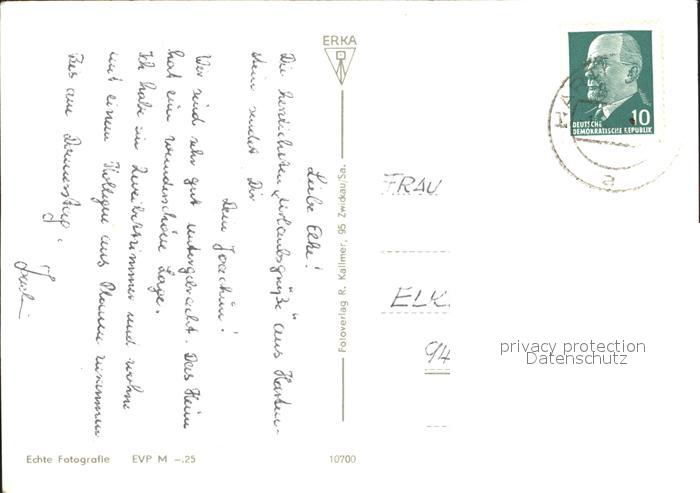 Liebe Elke!
Die herzlichsten Urlaubsgrüße aus Harten-
stein sendet Dir
Dein Joachim!
Wir sind sehr gut untergebracht. Das Heim
hat eine wunderschöne Lage.
Ich habe ein Zweibettzimmer und wohne
mit einem Kollegen aus Plauen zusammen
Bis am Donnerstag!
ERKA
Fotoverlag R. Kallmer, 95 Zwickau/Sa.
10
DEUTSCHE
DEMOKRATISCHE REPUBLIK
HAR
a
FRAU
ELK
94
privacy protection
Datenschutz
Echte Fotografie EVP M -.25 10700